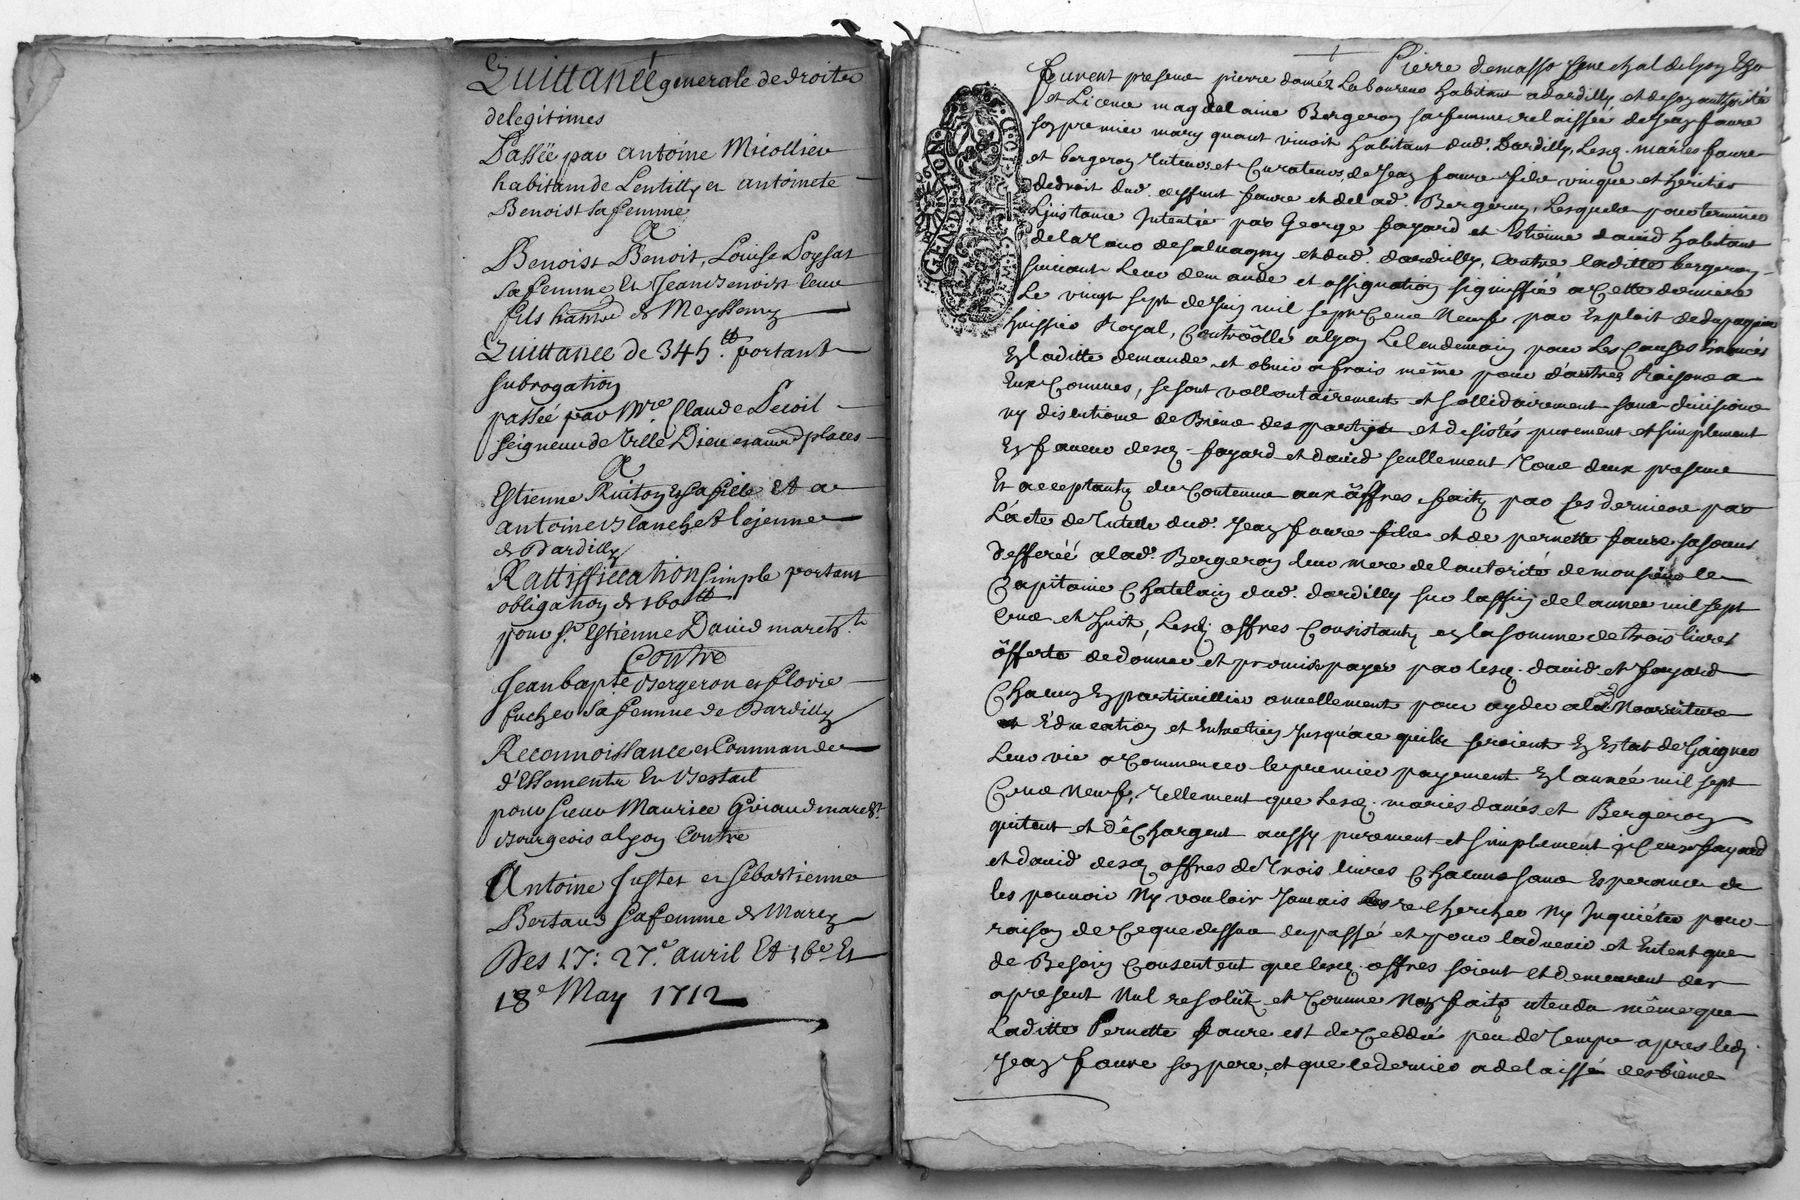 Quittance generale de droits
delegitimes
Passée par antoine Micollier
habitant de Lentilly et antoinete
Benoist sa femme
A
Benoist Benoit, Louise Poysat
sa femme Et Jean Benoist leur
fils de Meyssemy
Quittance de 345.tt portant
subrogation
passée par Mre Claude
seigneur de Ville Dieu et autres places
A
Estienne Ruiton Et sa fille Et a
antoine Blanchet lejeune
de Dardilly
Rattiffiecation simple portant
obligation de 160tt
pour sr. Estienne David march.t
Contre
Jean bapte Bergeron et florie
fucher sa femme de Dardilly
Reconnoissance et Commande
d'Essements En Bestail
pour sieur Maurice Giraud march.t
Bourgeois a lyon Contre
Antoine Juster et sebastienne
Bertaud sa femme de Marcy
Des 17: 27.e avril Et 16e Et
18e May 1712
Pierre demasso senechal de lyon
GIN. DE LYON
furent presens pierre damés Laboureur habitant a dardilly et de son authorité
et Licence magdelaine Bergeron sa femme relaissée de Jean faure
son premier mary quant vivoit habitant dud. Dardilly, Lesq. mariés faure
et bergeron tuteurs et Curateurs de Jean faure fils unique et heritier
de droit dud. deffunt faure et de lad. Bergeron, Lesquels pour terminer
L'instance Intentée par George fayard et Estienne david habitant
de la Tour de salvagny et dud. dardilly, Contre laditte bergeron
suivant Leur demande et assignation signiffié a Cette derniere
Le vingt sept de Juin mil sept Cens Neuf par Exploit de dupaquier
huissier Royal, Controollé a lyon Le lendemain pour Les Causes
En laditte demande et obvier a frais même pour d'autres Raisons a
Eux Connues, se sont vollontairement et sollidairement sans division
ny discution de Biens des partyes et desistés purement et simplement
En faveur desq. fayard et david seullement tous deux presens
Et acceptants du Contenu aux offres faits par Ces derniers par
L'acte de Tutelle dud. Jean faure fils et de pernette faure sa soeur
Defferéé a lad. Bergeron leur mere de l'autorité de monsieur le
Capitaine Chatelain dud. dardilly sur la fin de l'année mil sept
Cens et huit, Lesq. offres Consistants en la somme de trois livres
offerte de donner et promis payer par lesq. david et fayard
Chacun En particullier annuellement pour ayder a la Nourriture
et Education et Entretien Jusqu'a ce qu'ils seroient En Estat de Gaigner
Leur vie a Commencer le premier payement En l'année mil sept
Cens Neuf, Tellement que Lesq. mariés damés et Bergeron
quitent et déChargent aussy purement et simplement iCeux fayard
et david desq. offres de Trois livres Chacun sans Esperance de
les pouvoir Ny vouloir Jamais reChercher Ny Inquiéter pour
raison de Ce que dessus du passé et pour ladvenir et Entent que
de Besoin Consentent que lesq. offres soient et demeurent des
apresent Nul resolut et Comme Non faits atendu même que
Laditte Pernette faure est deCeddée peu de Temps apres led.
Jean faure son pere, et que le dernier a delaissé des biens